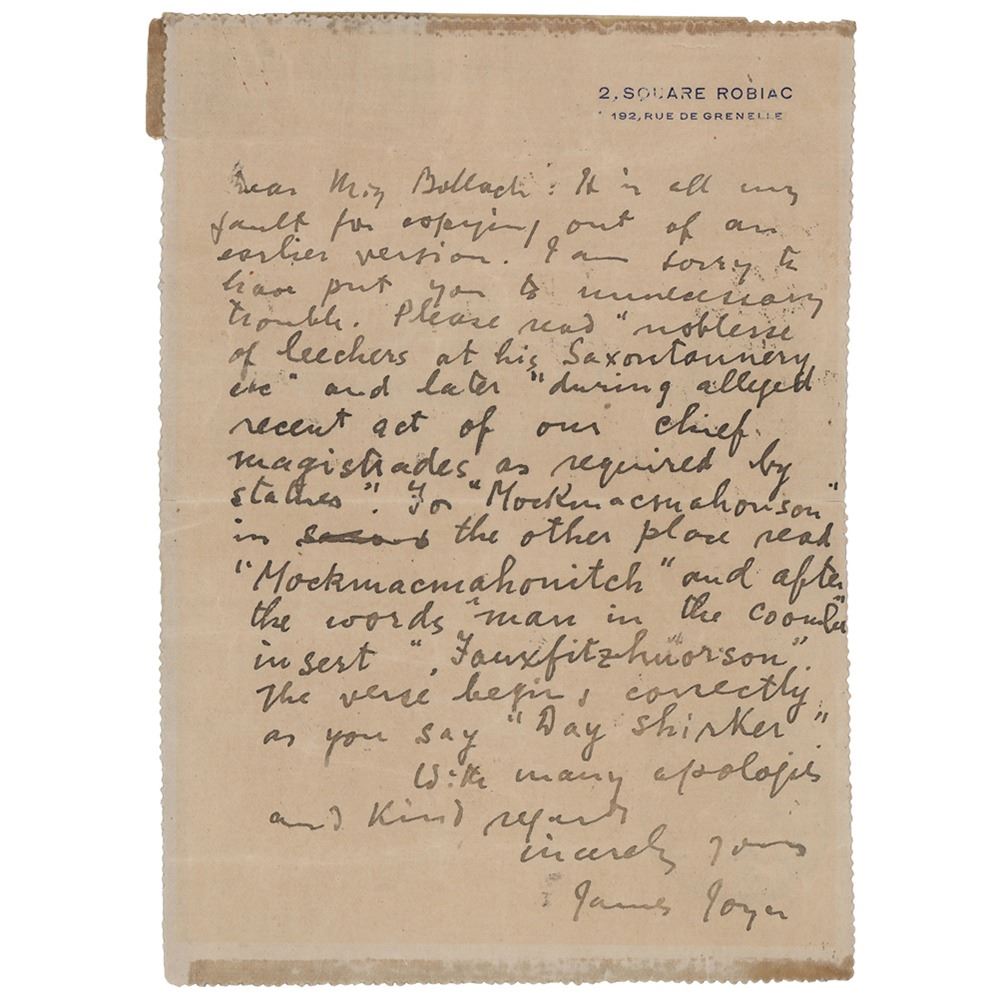 2, SQUARE ROBIAC
192, RUE DE GRENELLE
Dear Miss Bollach: It is all my
fault for copying out of an
earlier version. I am sorry to
have put you to unnecessary
trouble. Please read "noblesse
of leechers at his Saxontannery
etc" and later "during alleged
recent act of our chief
magistrades as required by
statues". For "Mockmacmahonson"
in the other place read
"Mockmacmahonitch" and after
the words "man in the Coombe"
insert ", Fauxfitzhuorson".
The verse begins correctly
as you say "Day shirker"
With many apologies
and kind regards
sincerely yours
James Joyce